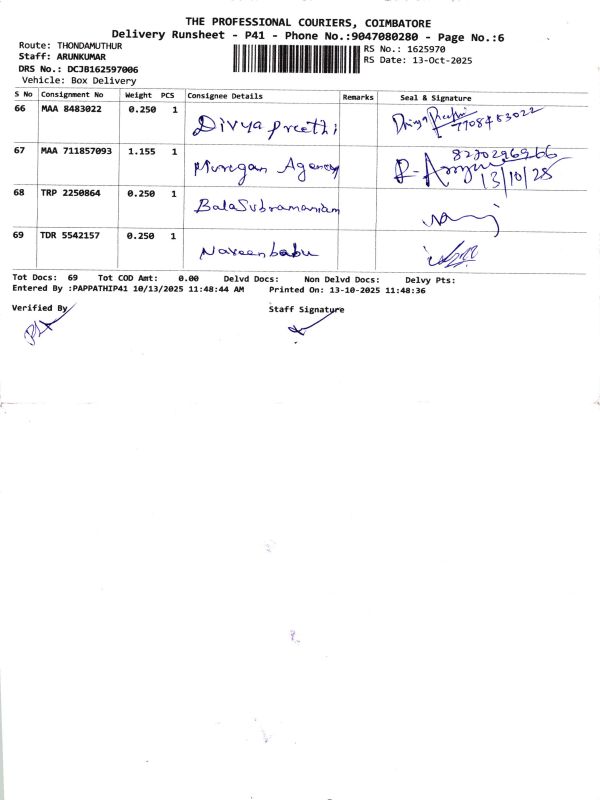 THE PROFESSIONAL COURIERS, COIMBATORE
Delivery Runsheet - P41 - Phone No.:9047080280 - Page No.:6
Route: THONDAMUTHUR
RS No.: 1625970
Staff: ARUNKUMAR
RS Date: 13-Oct-2025
DRS No.: DCJB162597006
Vehicle: Box Delivery
S No Consignment No Weight PCS Consignee Details Remarks Seal & Signature
66 MAA 8483022 0.250 1 Divya preethi 7708483022
67 MAA 711857093 1.155 1 Murugan Agency 13/10/25
68 TRP 2250864 0.250 1 BalaSubramaniam
69 TDR 5542157 0.250 1 Naveenbabu
Tot Docs: 69 Tot COD Amt: 0.00 Delvd Docs: Non Delvd Docs: Delvy Pts:
Entered By :PAPPATHIP41 10/13/2025 11:48:44 AM Printed On: 13-10-2025 11:48:36
Verified By Staff Signature